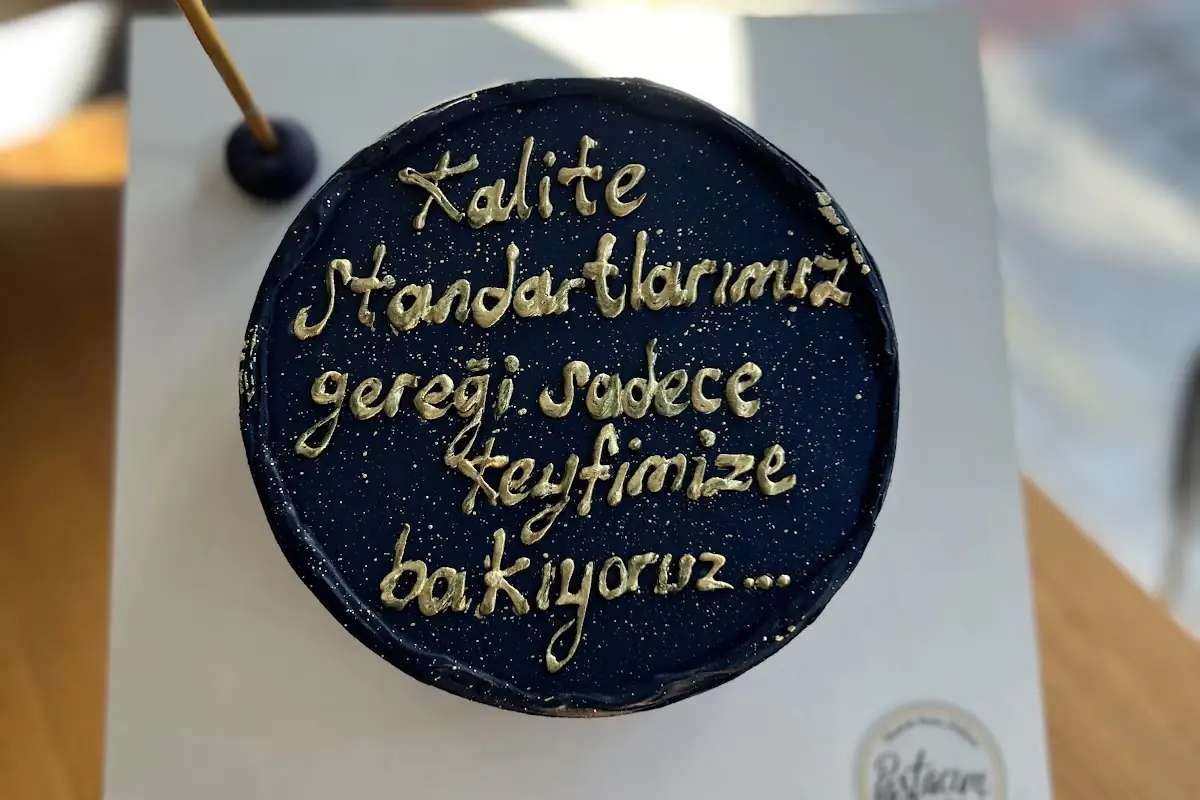 Kalite
standartlarımız
gereği sadece
keyfimize
bakıyoruz...
Pastacım